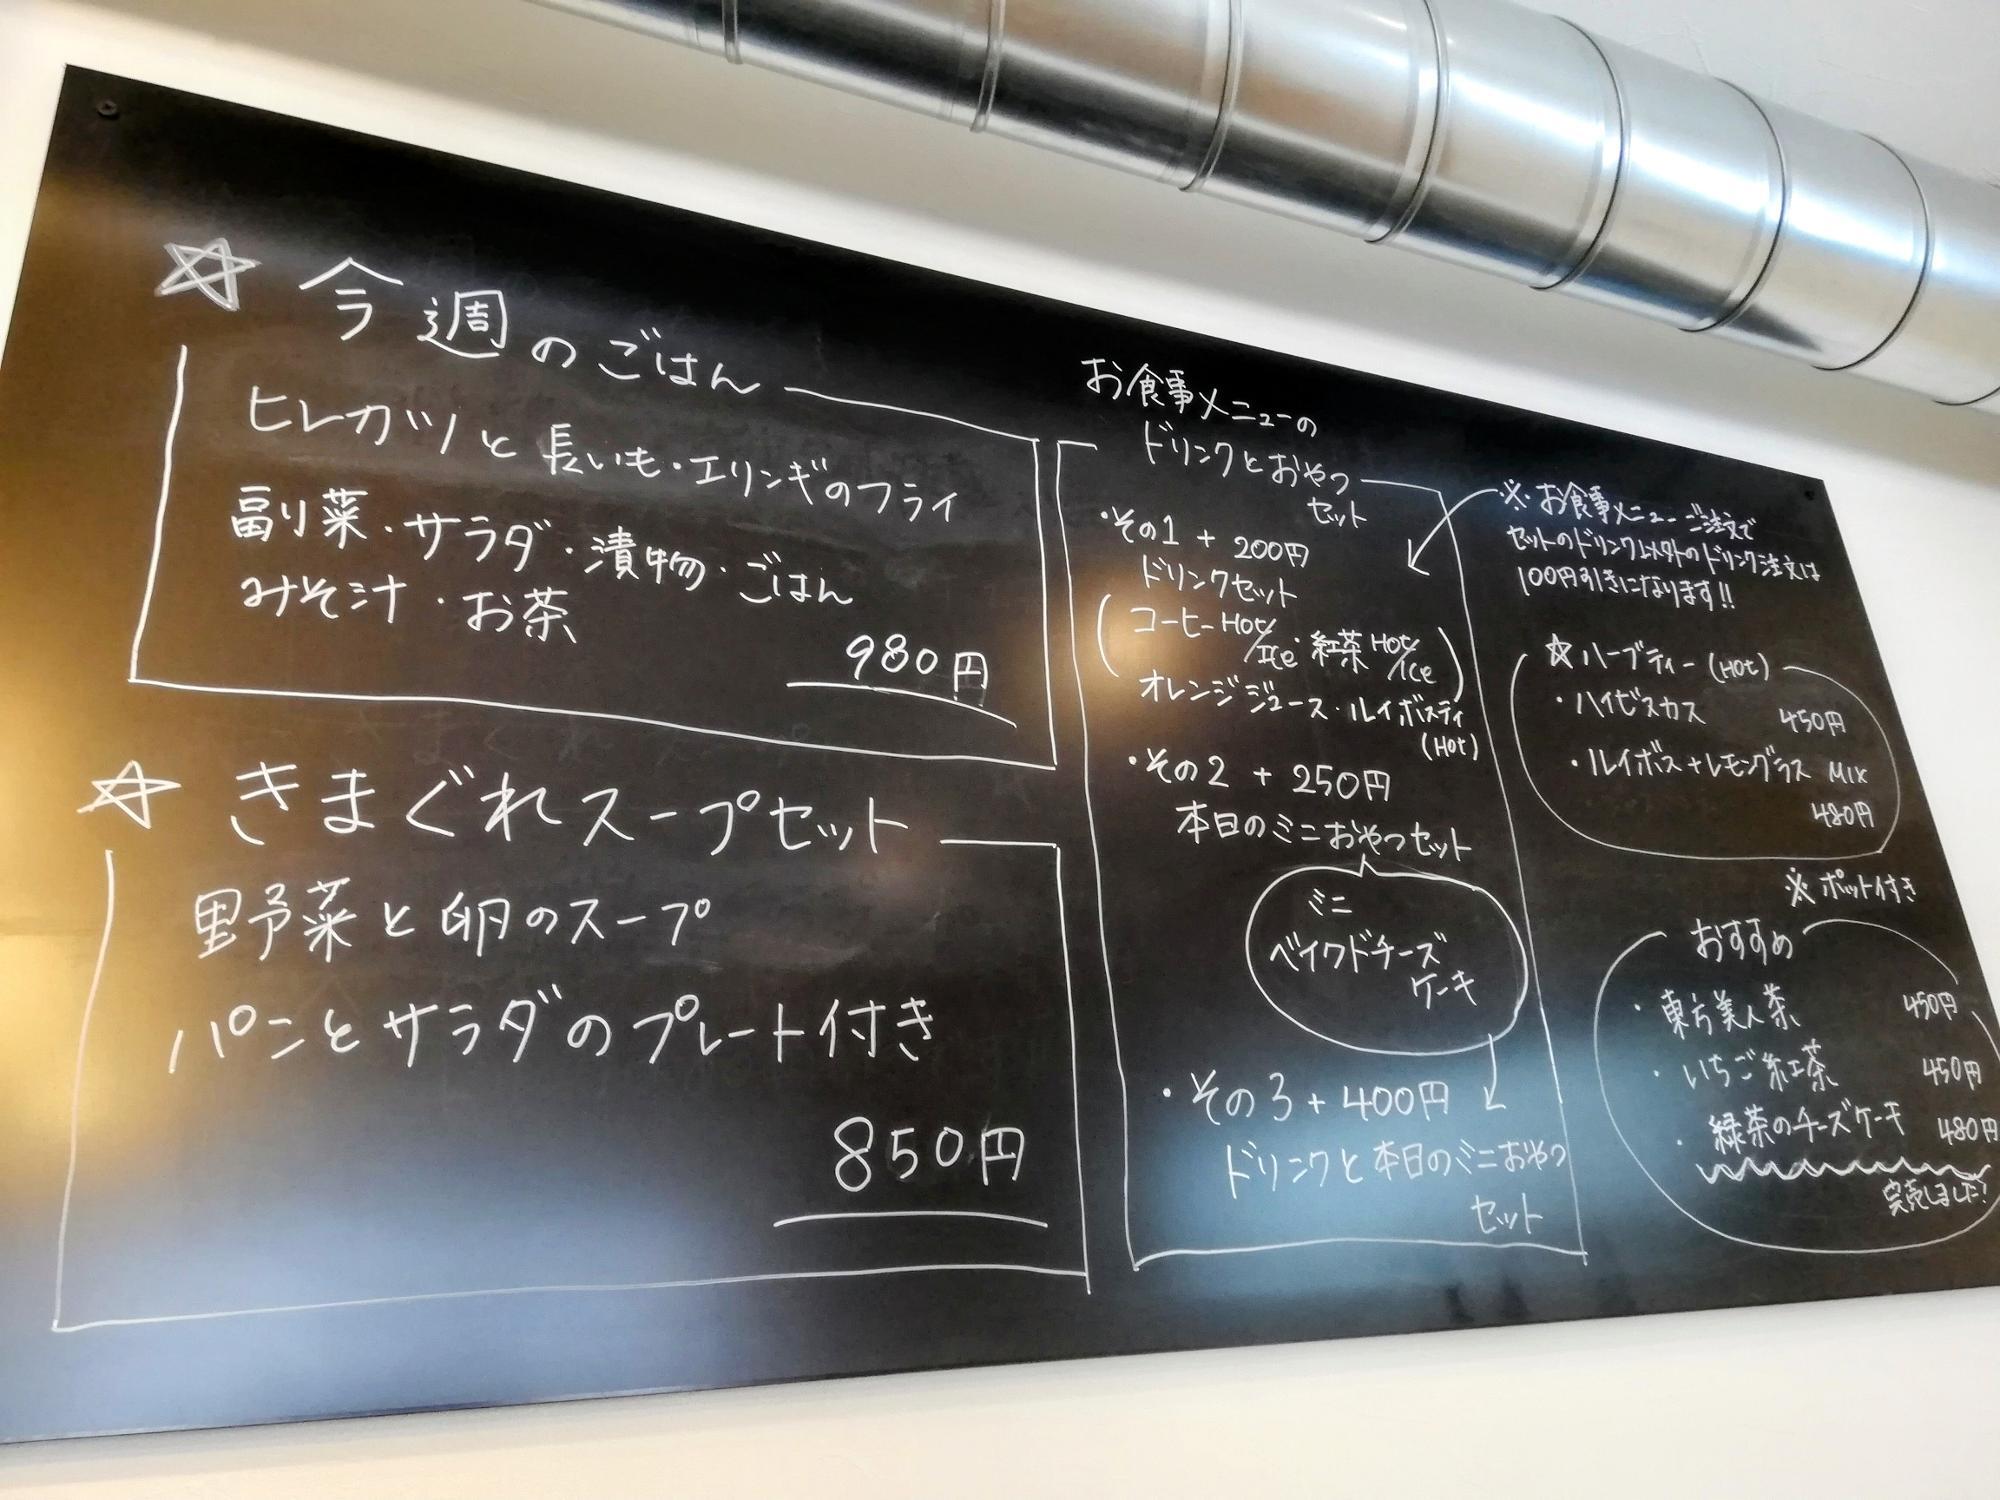 ☆ 今週のごはん
ヒレカツと長いも・エリンギのフライ
副菜・サラダ・漬物・ごはん
みそ汁・お茶
980円
☆ きまぐれスープセット
野菜と卵のスープ
パンとサラダのプレート付き
850円
お食事メニューの
ドリンクとおやつ
セット
・その1 + 200円
ドリンクセット
(コーヒーHot/Ice・紅茶Hot/Ice)
オレンジジュース・ルイボスティ
(Hot)
・その2 + 250円
本日のミニおやつセット
ミニ
ベイクドチーズ
ケーキ
・その3 + 400円
ドリンクと本日のミニおやつ
セット
※お食事メニューご注文で
セットのドリンク以外のドリンク注文は
100円引きになります!!
☆ ハーブティー(Hot)
・ハイビスカス 450円
・ルイボス+レモングラス MIX
480円
※ポット付き
おすすめ
・東方美人茶 450円
・いちご紅茶 450円
・緑茶のチーズケーキ 480円
完売しました!